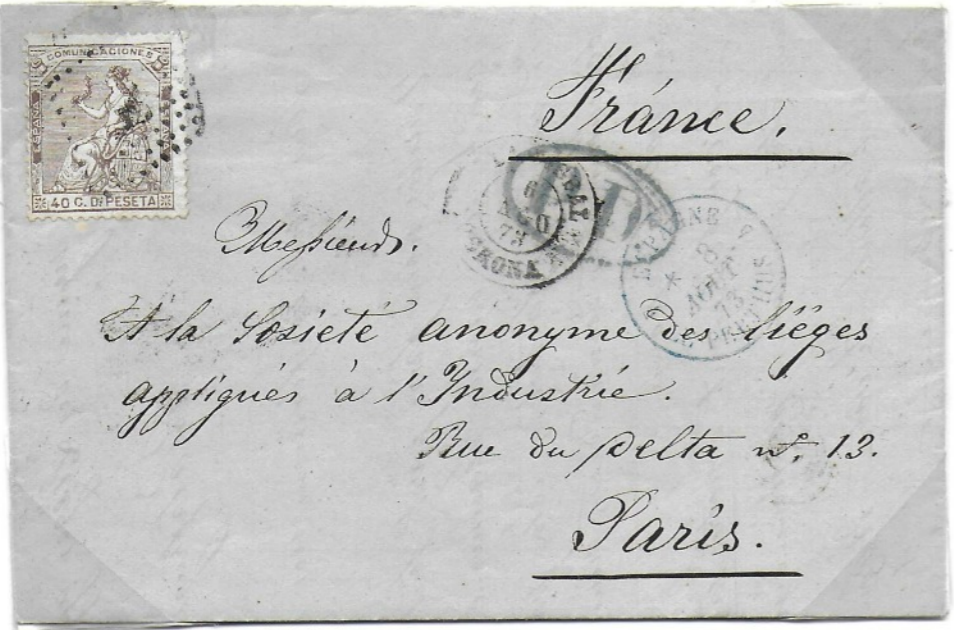 COMUNICACIONES
ESPAÑA
40 C. DE PESETA
Fránce.
6
AGO
73
GERONA
PD
ESPAGNE
8
AOUT
73
Messieurs.
A la Sosieté anonyme des liéges
appliqués à l'Industrie.
Rue du Delta nº. 13.
Paris.